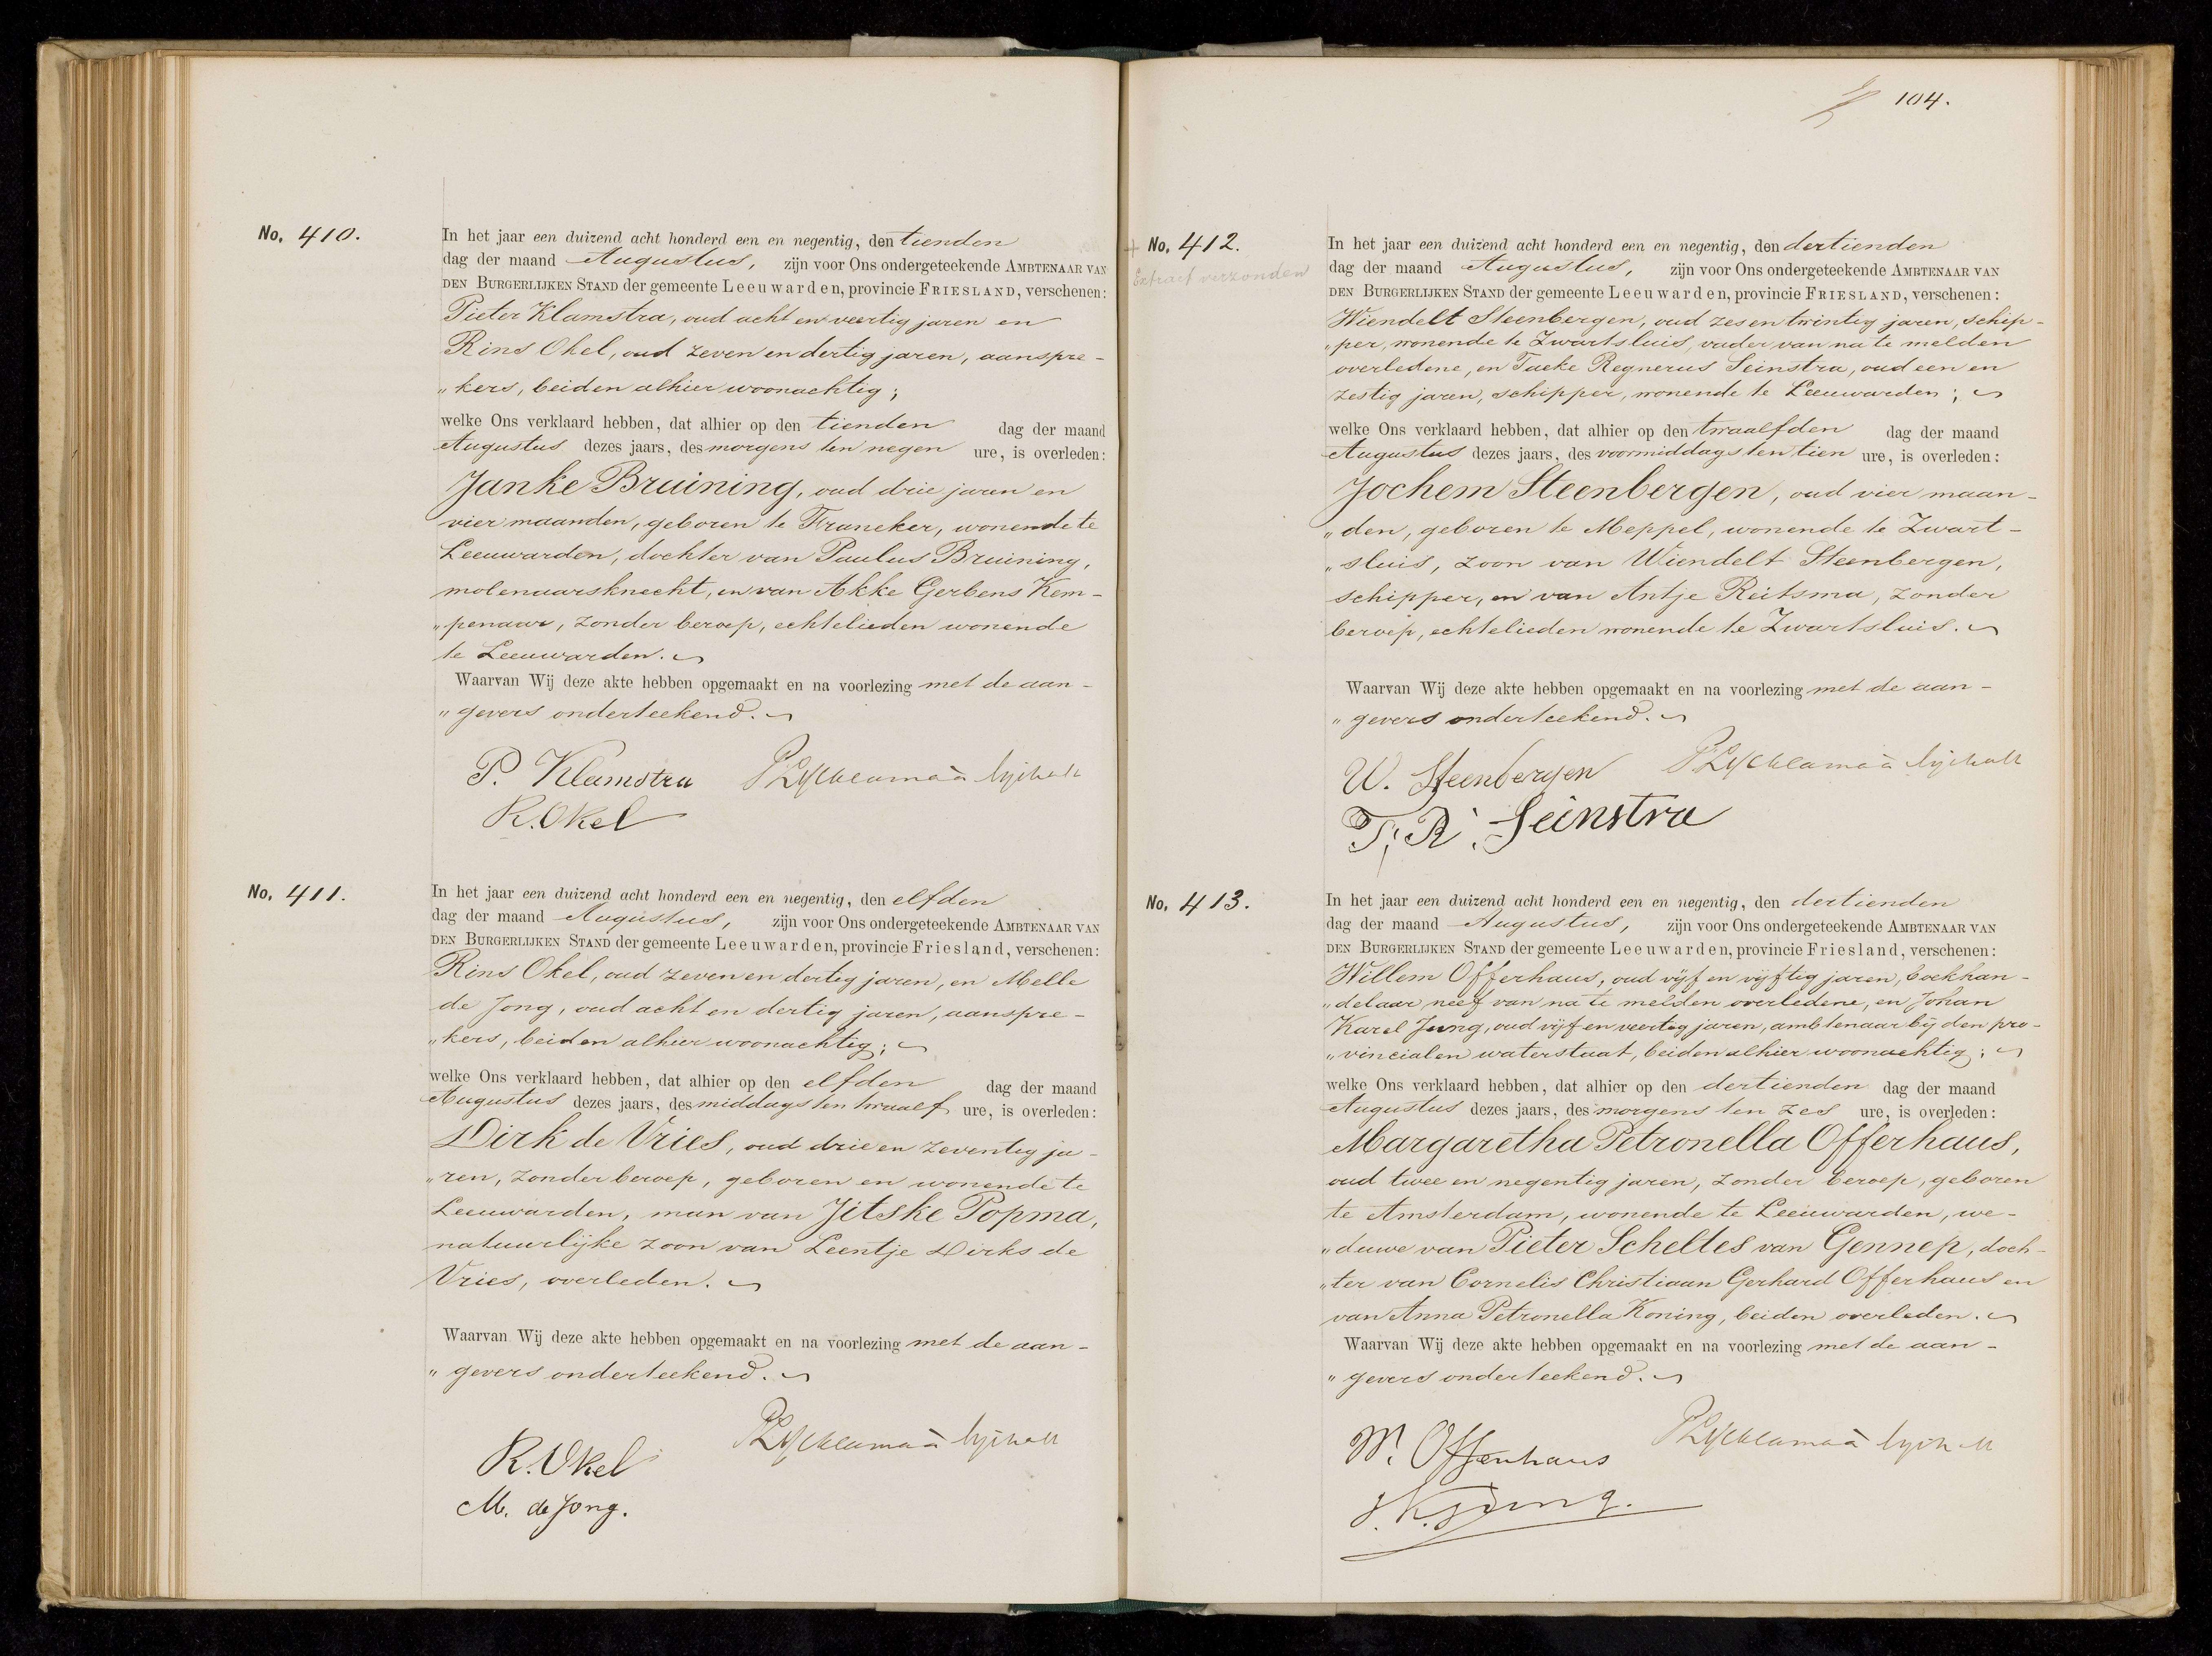 No. 410.
In het jaar een duizend acht honderd een en negentig, den tienden
dag der maand Augustus, zijn voor Ons ondergeteekende AMBTENAAR VAN
DEN BURGERLIJKEN STAND der gemeente Leeuwarden, provincie FRIESLAND, verschenen:
Pieter Klamstra, oud acht en veertig jaren en
Rins Okel, oud zeven en dertig jaren, aanspre-
„kers, beiden alhier woonachtig;
welke Ons verklaard hebben, dat alhier op den tienden dag der maand
Augustus dezes jaars, des morgens ten negen ure, is overleden:
Janke Bruining, oud drie jaren en
vier maanden, geboren te Franeker, wonende te
Leeuwarden, dochter van Paulus Bruining,
molenaarsknecht, en van Akke Gerbens Kem-
„penaar, zonder beroep, echtelieden wonende
te Leeuwarden.
Waarvan Wij deze akte hebben opgemaakt en na voorlezing met de aan-
„gevers onderteekend.
P. Klamstra PLycklama à Nijeholt
R. Okel
No. 411.
In het jaar een duizend acht honderd een en negentig, den elfden
dag der maand Augustus, zijn voor Ons ondergeteekende AMBTENAAR VAN
DEN BURGERLIJKEN STAND der gemeente Leeuwarden, provincie Friesland, verschenen:
Rins Okel, oud zeven en dertig jaren, en Melle
de Jong, oud acht en dertig jaren, aanspre-
„kers, beiden alhier woonachtig;
welke Ons verklaard hebben, dat alhier op den elfden dag der maand
Augustus dezes jaars, des middags ten twaalf ure, is overleden:
Dirk de Vries, oud drie en zeventig ja-
„ren, zonder beroep, geboren en wonende te
Leeuwarden, man van Jitske Popma,
natuurlijke zoon van Leentje Dirks de
Vries, overleden.
Waarvan Wij deze akte hebben opgemaakt en na voorlezing met de aan-
„gevers onderteekend.
R. Okel PLycklama à Nijeholt
M. de Jong.
104.
No. 412.
Extract verzonden
In het jaar een duizend acht honderd een en negentig, den dertienden
dag der maand Augustus, zijn voor Ons ondergeteekende AMBTENAAR VAN
DEN BURGERLIJKEN STAND der gemeente Leeuwarden, provincie FRIESLAND, verschenen:
Wiendelt Steenbergen, oud zes en twintig jaren, schip-
„per, wonende te Zwartsluis, vader van na te melden
overledene, en Taeke Regnerus Seinstra, oud een en
zestig jaren, schipper, wonende te Leeuwarden;
welke Ons verklaard hebben, dat alhier op den twaalfden dag der maand
Augustus dezes jaars, des voormiddags ten tien ure, is overleden:
Jochem Steenbergen, oud vier maan-
„den, geboren te Meppel, wonende te Zwart-
„sluis, zoon van Wiendelt Steenbergen,
schipper, en van Antje Reitsma, zonder
beroep, echtelieden wonende te Zwartsluis.
Waarvan Wij deze akte hebben opgemaakt en na voorlezing met de aan-
„gevers onderteekend.
W. Steenbergen PLycklama à Nijeholt
T. R. Seinstra
No. 413.
In het jaar een duizend acht honderd een en negentig, den dertienden
dag der maand Augustus, zijn voor Ons ondergeteekende AMBTENAAR VAN
DEN BURGERLIJKEN STAND der gemeente Leeuwarden, provincie Friesland, verschenen:
Willem Offerhaus, oud vijf en vijftig jaren, boekhan-
„delaar, neef van na te melden overledene, en Johan
Karel Jung, oud vijf en veertig jaren, ambtenaar bij den pro-
„vincialen waterstaat, beiden alhier woonachtig;
welke Ons verklaard hebben, dat alhier op den dertienden dag der maand
Augustus dezes jaars, des morgens ten zes ure, is overleden:
Margaretha Petronella Offerhaus,
oud twee en negentig jaren, zonder beroep, geboren
te Amsterdam, wonende te Leeuwarden, we-
„duwe van Pieter Scheltes van Gennep, doch-
„ter van Cornelis Christiaan Gerhard Offerhaus en
van Anna Petronella Koning, beiden overleden.
Waarvan Wij deze akte hebben opgemaakt en na voorlezing met de aan-
„gevers onderteekend.
W. Offerhaus PLycklama à Nijeholt
J. K. Jung.